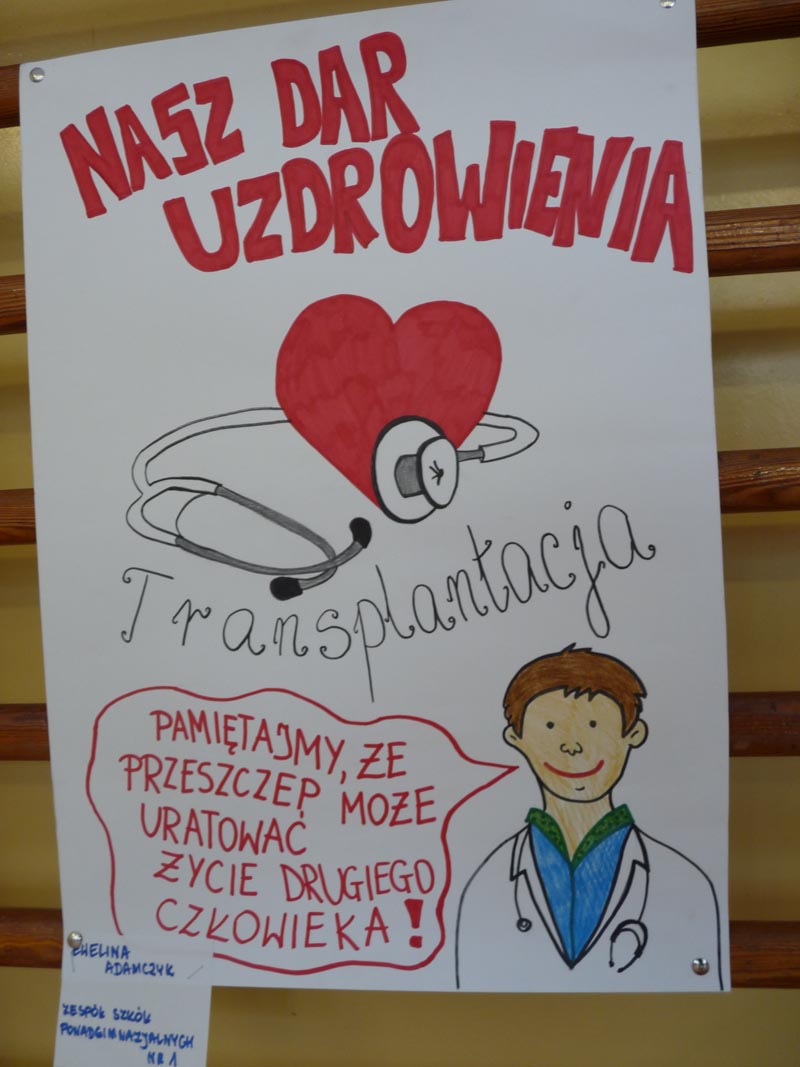 NASZ DAR
UZDROWIENIA
Transplantacja
PAMIĘTAJMY, ŻE
PRZESZCZEP MOŻE
URATOWAĆ
ŻYCIE DRUGIEGO
CZŁOWIEKA!
EWELINA
ADAMCZYK
ZESPÓŁ SZKÓŁ
PONADGIMNAZJALNYCH
NR 1